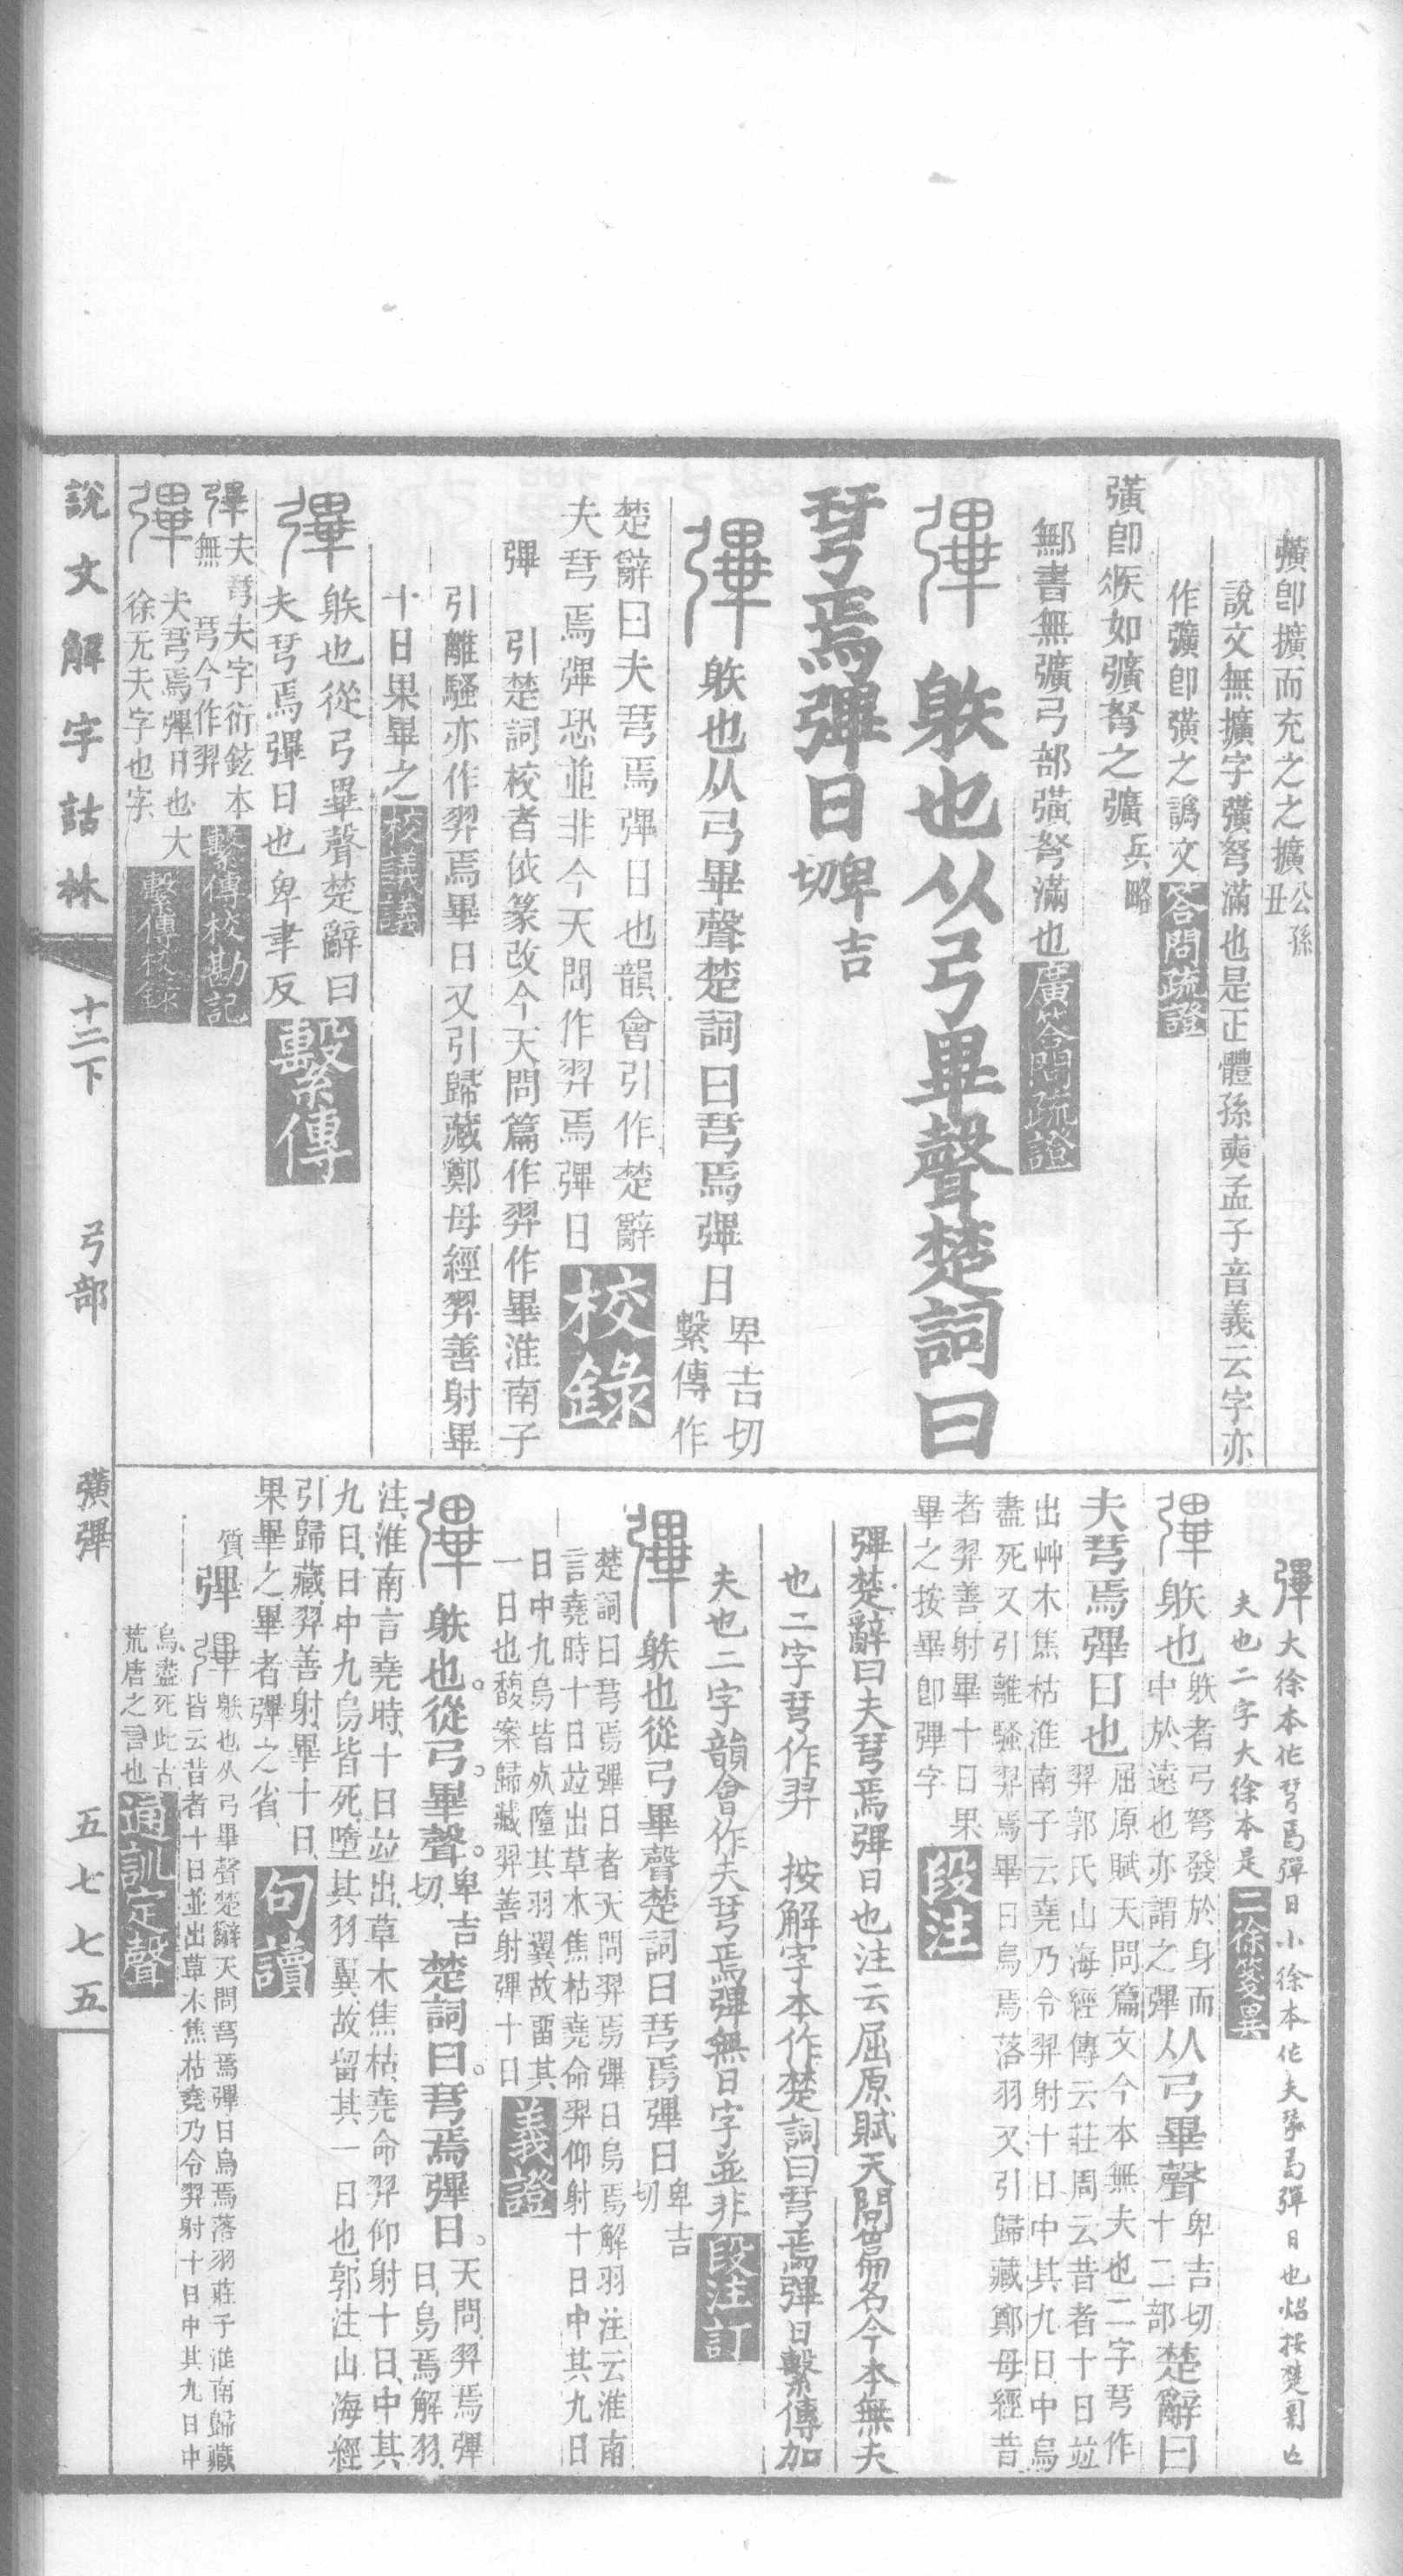 彉卽擴而充之之擴公孫丑
說文無擴字彉弩滿也是正體孫奭孟子音義云字亦
作彍卽彉之譌文答問疏證
彉卽疾如彍弩之彍兵略
鄦書無彍弓部彉弩滿也廣答問疏證
彃䠶也从弓畢聲楚詞曰
𢎗焉彃日卑吉切
彃䠶也从弓畢聲楚詞曰𢎗焉彃日卑吉切繫傳作
楚辭曰夫𢎗焉彃日也韻會引作楚辭
夫𢎗焉彃恐並非今天問作羿焉彃日校錄
彃　引楚詞校者依篆改今天問篇作羿作畢淮南子
引離騷亦作羿焉畢日又引歸藏鄭母經羿善射畢
十日果畢之校議議
彃䠶也從弓畢聲楚辭曰
夫𢎗焉彃日也卑聿反繫傳
彃夫𢎗夫字衍鉉本無　𢎗今作羿繫傳校勘記
彃夫𢎗焉彃日也大徐无夫字也字繫傳校錄
彃大徐本作𢎗焉彃日小徐本作夫𢎗焉彃日也炤按楚詞亡
夫也二字大徐本是二徐箋異
彃䠶也䠶者弓弩發於身而中於遠也亦謂之彃从弓畢聲卑吉切十二部楚辭曰
夫𢎗焉彃日也屈原賦天問篇文今本無夫也二字𢎗作羿郭氏山海經傳云莊周云昔者十日竝
出艸木焦枯淮南子云堯乃令羿射十日中其九日中烏
盡死又引離騷羿焉畢日烏焉落羽又引歸藏鄭母經昔
者羿善射畢十日果
畢之按畢卽彃字段注
彃楚辭曰夫𢎗焉彃日也注云屈原賦天問篇名今本無夫
也二字𢎗作羿　按解字本作楚詞曰𢎗焉彃日繫傳加
夫也二字韻會作夫𢎗焉彃無日字並非段注訂
彃䠶也從弓畢聲楚詞曰𢎗焉彃日卑吉切
楚詞曰𢎗焉彃日者天問羿焉彃日烏焉解羽注云淮南
言堯時十日竝出草木焦枯堯命羿仰射十日中其九日
日中九烏皆死墮其羽翼故畱其
一日也馥案歸藏羿善射彃十日義證
彃䠶也。從弓。畢聲。卑吉切、楚詞曰。𢎗焉彃日。天問、羿焉彃日、烏焉解羽、
注、淮南言堯時、十日竝出、草木焦枯、堯命羿仰射十日、中其
九日、日中九烏皆死、墮其羽翼、故留其一日也、郭注山海經
引歸藏、羿善射、畢十日、
果畢之、畢者彃之省、句讀
質彃彃䠶也从弓畢聲楚辭天問𢎗焉彃日烏焉落羽莊子淮南歸藏
皆云昔者十日並出草木焦枯堯乃令羿射十日中其九日中
烏盡死此古
荒唐之言也通訓定聲
說文解字詁林　十二下　弓部　彉彃　五七七五